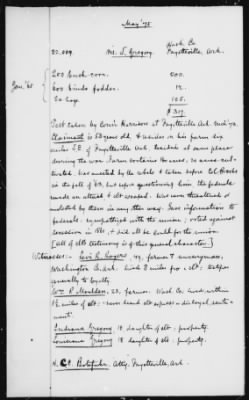 May '75
Wash. Co.
22,009. Mr. J. Gregory Fayetteville, Ark.
Jan. '65
200 bush corn. 200.
600 binds fodder. 12.
20 hogs 105.
$317.
Test. taken by Com'r Harrison at Fayetteville Ark.
Claimant is 53 years old, & resides on his farm six
miles S.E. of Fayetteville Ark. Resided at same place
during the war. Farm contains acres, 50 acres culti-
vated. Was arrested by the rebels & taken before Col. Brooks
in the fall of '64, but before questioning him the federals
made an attack & clt. escaped. Was never threatened or
molested by them in any other way. Gave information to
federals. Sympathized with the union; voted against
secession in '61, & did all he could for the union
[All of clts. testimony is of this general character.]
Witnesses: Levi R. Rogers, 49, farmer & nurseryman,
Washington Co. Ark. Lived 2 miles from clt. Testifies
generally to loyalty
Wm. P. Moulden, 23, farmer. Wash. Co. Lived within
1/2 miles of clt: never heard clt. express a disloyal senti-
ment.
Indiana Gregory 18 daughter of clt: property.
Louisiana Gregory 18 daughter of clt: property.
Atty. Fayetteville Ark.